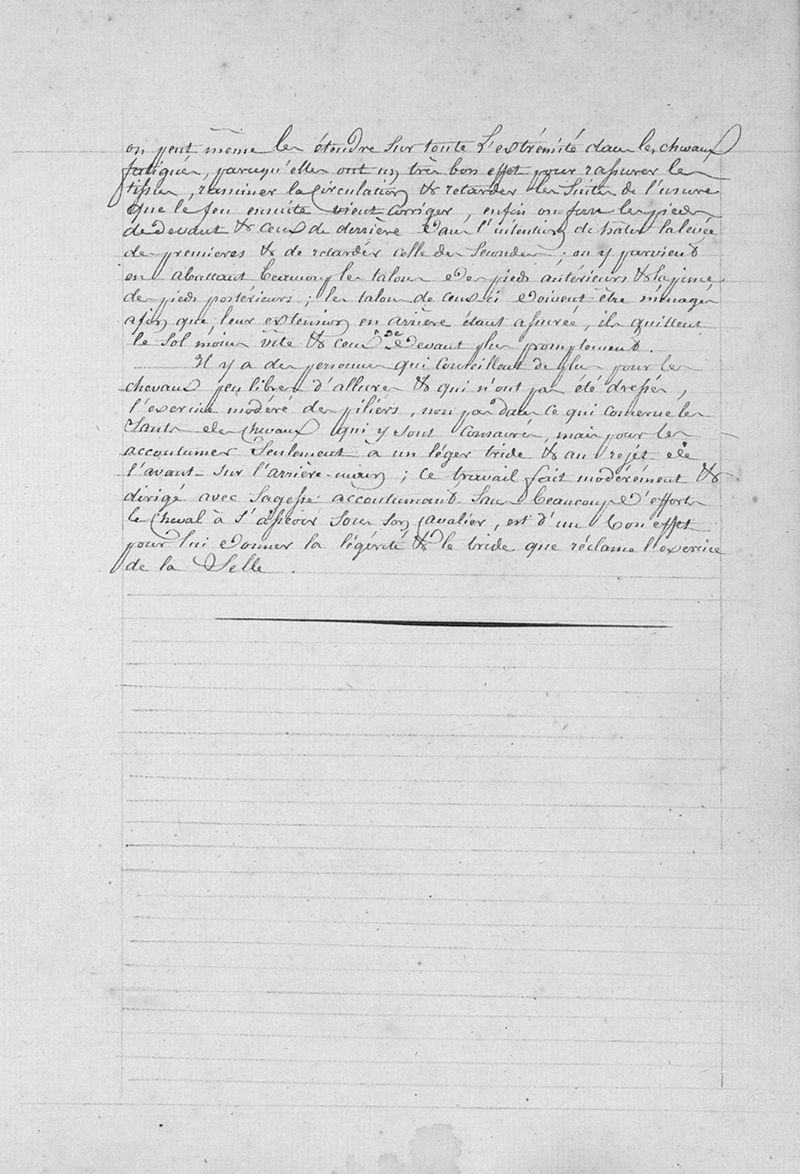 on peut même les étendre sur toute l'extrémité dans les chevaux
fatigués, parcequ'elles ont un très bon effet pour rassurer les
tissus, ranimer la Circulation & retarder les Suites de l'usure
que le feu ensuite vient corriger, enfin on ferre les pieds
de devant & ceux de derrière dans l'intention de hâter la levée
des premières & de retarder celle des Secondes; on y parvient
en abattant beaucoup les talons des pieds antérieurs & la pince
des pieds postérieurs; les talons de ceux ci doivent être ménagés
afin que, leur extension en arrière étant assurée, ils quittent
le sol moins vite & ceux de devant plus promptement.
Il y a des personnes qui Conseillent de plus pour les
chevaux peu libres d'allures & qui n'ont pas été dressés,
l'exercice modéré des piliers, non pas dans ce qui concerne les
Sauts des chevaux qui y sont Consacrés, mais pour les
accoutumer Seulement à un léger tride & au rejét de
l'avant-sur l'arrière-main; ce travail fait modérément &
dirigé avec Sagesse accoutumant Sans beaucoup d'efforts
le Cheval à s'asseoir sous son cavalier, est d'un bon effet
pour lui donner la légéreté & le tride que réclame l'exercice
de la Selle.